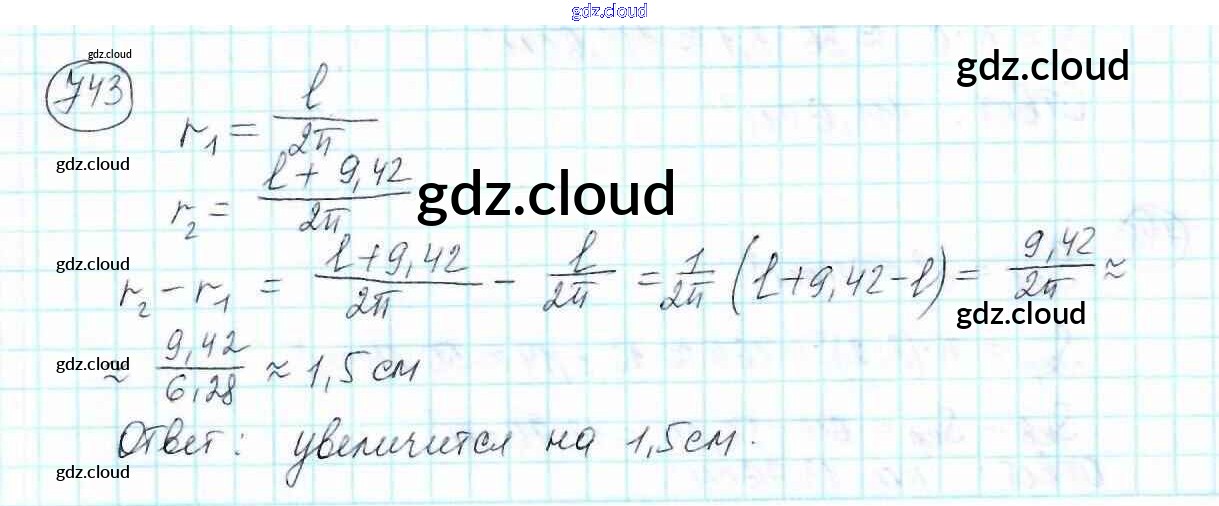 gdz.cloud
gdz.cloud
743
gdz.cloud
r₁ = l/2π
gdz.cloud
r₂ = (l + 9,42)/2π
gdz.cloud
gdz.cloud
r₂ − r₁ = (l+9,42)/2π − l/2π = 1/2π (l+9,42−l) = 9,42/2π ≈
gdz.cloud
gdz.cloud
≈ 9,42/6,28 ≈ 1,5 см
Ответ: увеличится на 1,5 см.
gdz.cloud